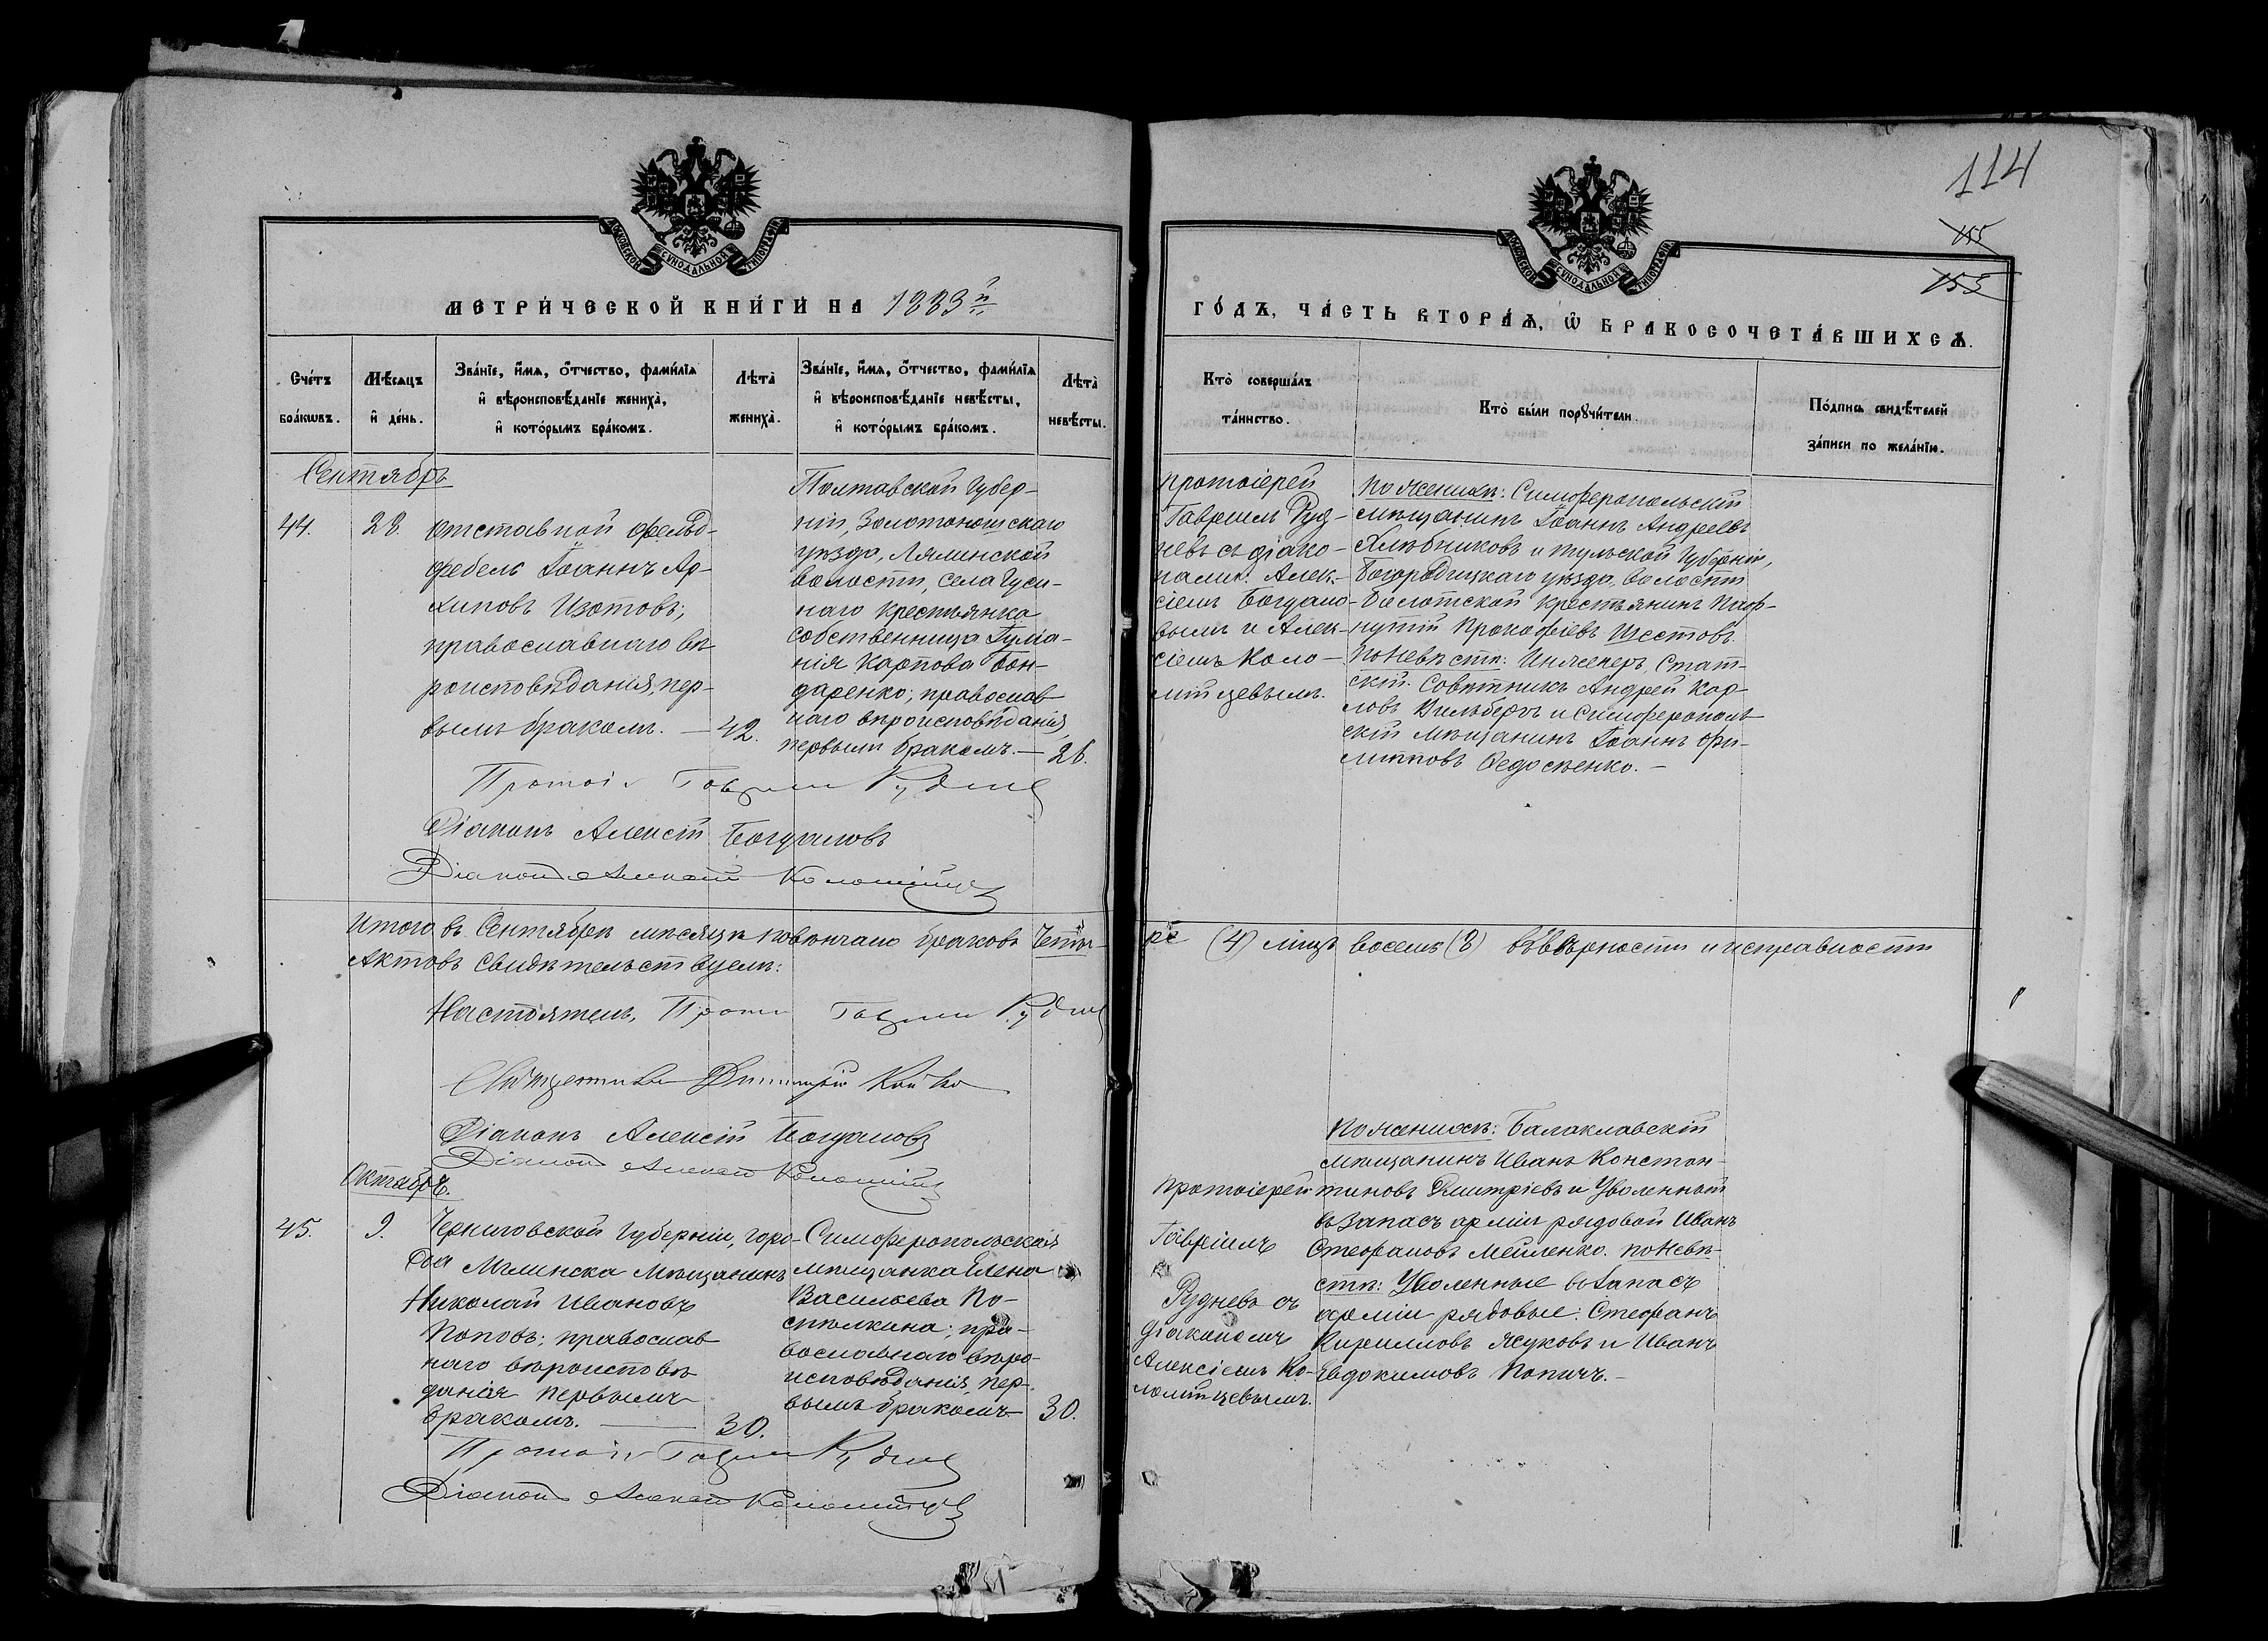 114
155
155
МОСКОВСКОЙ СѴНОДАЛЬНОЙ ТИПОГРАФІИ
МОСКОВСКОЙ СѴНОДАЛЬНОЙ ТИПОГРАФІИ
МЕТРИ́ЧЕСКОЙ КНИ́ГИ НА 1883й
ГО́ДЪ, ЧА́СТЬ ВТОРА́Ѧ, Ѽ БРАКОСОЧЕТА́ВШИХСѦ.
Сче́тъ бра́кѡвъ.
Мѣ́сѧцъ и҆ де́нь.
Зва́нїе, и҆́мѧ, ѻ҆́тчество, фами́лїѧ
и҆ вѣроисповѣ́данїе жениха̀,
и҆ кото́рымъ бра́комъ.
Лѣта̀ жениха̀.
Зва́нїе, и҆́мѧ, ѻ҆́тчество, фами́лїѧ
и҆ вѣроисповѣ́данїе невѣ́сты,
и҆ кото́рымъ бра́комъ.
Лѣта̀ невѣ́сты.
Кто̀ соверша́лъ та́инство.
Кто̀ бы́ли порꙋчи́тели.
По́дпись свидѣ́телей за́писи по жела́нїю.
Сентябрь
44.
28.
отставной фельд-
фебель Іоаннъ Ар-
хиповъ Изотовъ;
православнаго вѣ
роисповѣданія, пер-
вымъ бракомъ. —
42.
Полтавской Губер-
ніи, Золотоношскаго
уѣзда, Лялинской
волости, села Гуси-
наго крестьянка
собственница Гула-
нія Карпова Бон-
даренко; православ
наго вѣроисповѣданія,
первымъ бракомъ. —
26.
протоіерей
Гавріилъ Руд-
невъ съ діако-
нами: Алек-
сіемъ Богдано-
вымъ и Алек-
сіемъ Коло-
мійцевымъ.
по женихѣ: Симферопольскій
мѣщанинъ Іоаннъ Андреевъ
Хлѣбниковъ и тульской Губерніи,
Богородицкаго уѣзда, волости
Болотской крестьянинъ Паф-
нутій Прокофіевъ Шестовъ.
по невѣстѣ: Инженеръ, Стат-
скій Совѣтникъ Андрей Кар-
ловъ и Симферополь
скій мѣщанинъ Іоаннъ Фи-
липповъ Федосѣенко. —
Гавриилъ Рудневъ
Діаконъ Алексій Богдановъ
Діаконъ Алексій Коломійцевъ
Итого въ Сентябрѣ мѣсяцѣ повѣнчано браковъ Четы-
ре (4) лицъ восемь (8) въ вѣрности и исправности
Актовъ свидѣтельствуемъ:
Настоятель, Гавриилъ Рудневъ
Димитрій Койко
Діаконъ Алексій Богдановъ
Діаконъ Алексій Коломійцевъ
Октябрь.
45.
9.
Черниговской Губерніи, горо-
да Мглинска мѣщанинъ
Николай Ивановъ
Поповъ; православ
наго вѣроисповѣ
данія первымъ
бракомъ. —
30.
Симферопольская
мѣщанка Елена
Васильева По-
спѣлкина; пра-
вославнаго вѣро-
исповѣданія, пер-
вымъ бракомъ —
30.
протоіерей
Гавріилъ
Рудневъ съ
діакономъ
Алексіемъ Ко-
ломійцевымъ.
по женихѣ: Балаклавскій
мѣщанинъ Иванъ Констан-
тиновъ Дмитріевъ и Уволенный
въ Запасъ арміи рядовой Иванъ
Стефановъ Мейленко. по Невѣ-
стѣ: Уволенные въ Запасъ
арміи рядовые: Стефанъ
Кирилловъ Жуковъ и Иванъ
Евдокимовъ Попичъ. —
Гавриилъ Рудневъ
Діаконъ Алексій Коломійцевъ